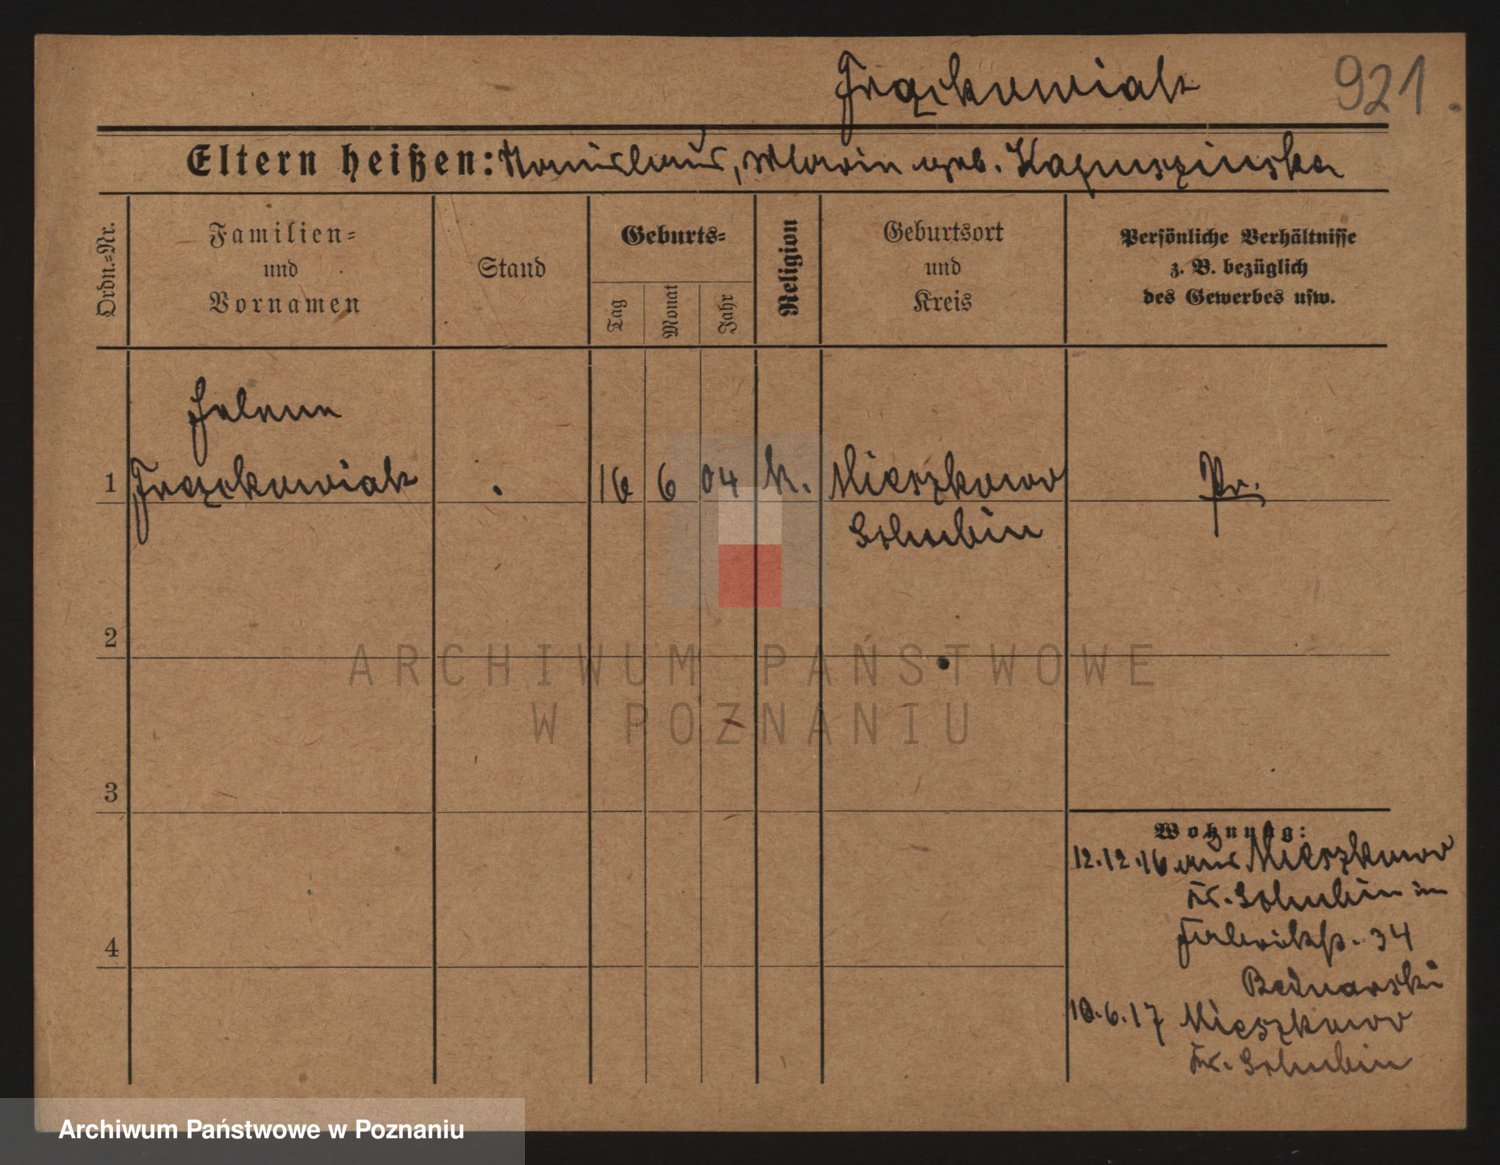 Frąckowiak 921.
Eltern heißen: Stanislaus, Marie geb. Kapuszinska
Ordn.=Nr.
Familien=
und
Vornamen
Stand
Geburts=
Tag
Monat
Jahr
Religion
Geburtsort
und
Kreis
Persönliche Verhältnisse
z. B. bezüglich
des Gewerbes usw.
Helene
1 Frąckowiak . 16 6 04 k. Mieszkowo Pr.
Schubin
2
ARCHIWUM PAŃSTWOWE
W POZNANIU
3
Wohnung:
12.12.16 aus Mieszkowo
Kr. Schubin in
Fabrikstr. 34
4
Bednarski
10.6.17 Mieszkowo
Kr. Schubin
Archiwum Państwowe w Poznaniu